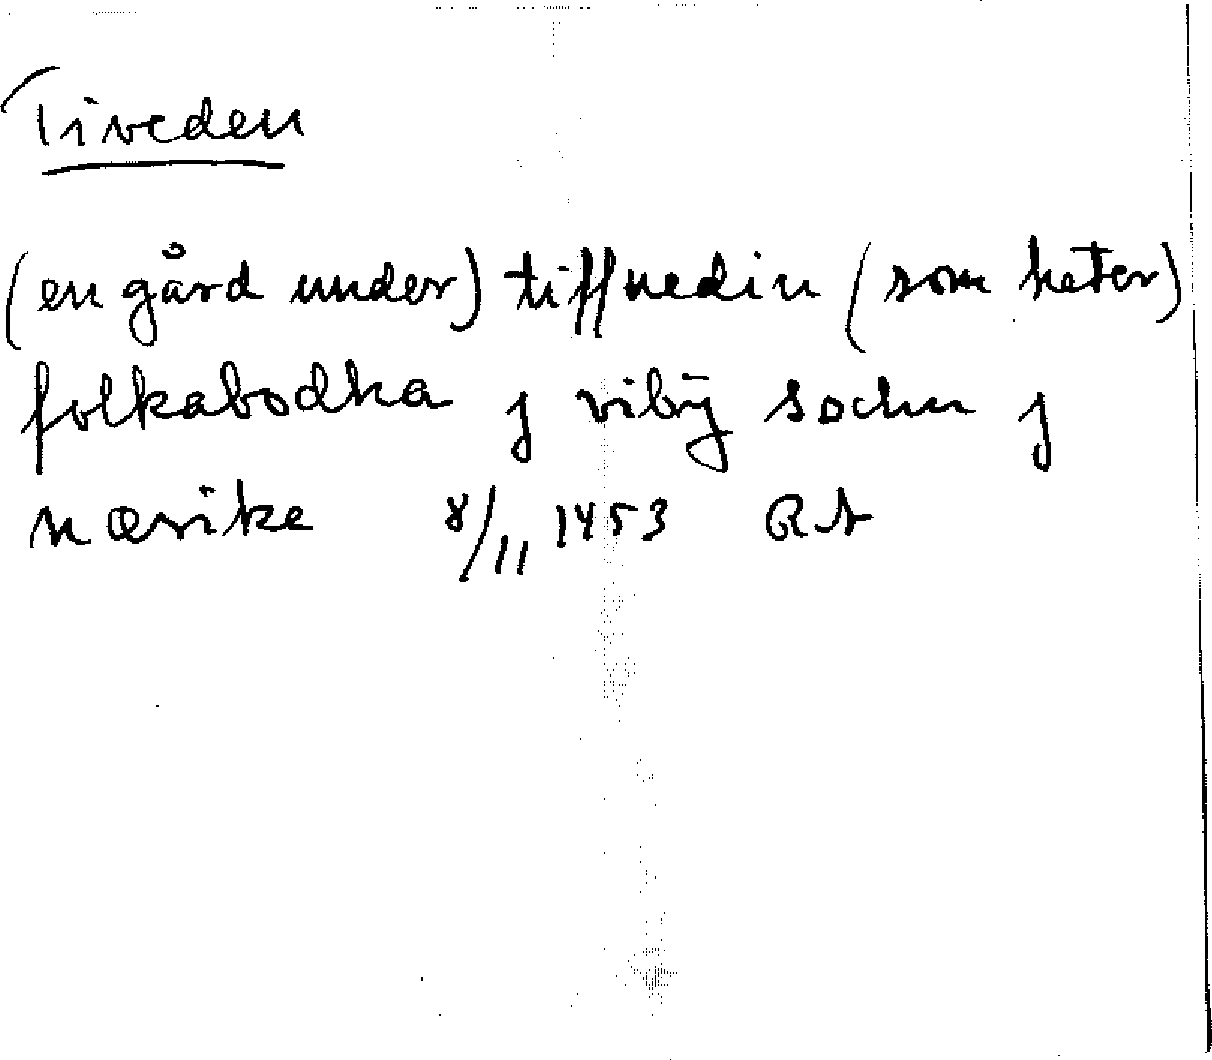 Tiveden
(en gård under) tiffuedin (som heter)
folkabodha j vibÿ sochn j
nærike 8/11 1453 RA